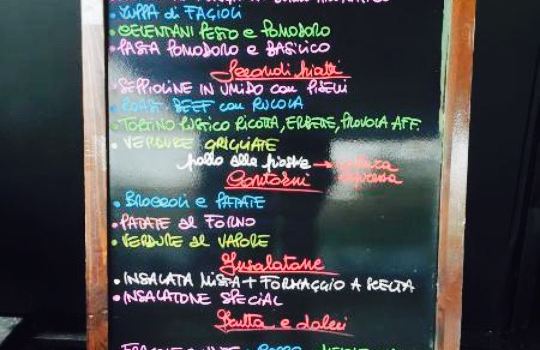 • ZUPPA di FAGIOLI
• CELENTANI PESTO e POMODORO
• PASTA POMODORO e BASILICO
Secondi Piatti
• SEPPIOLINE IN UMIDO con PISELLI
• ROAST BEEF con RUCOLA
• TORTINO RUSTICO RICOTTA, ERBETTE, PROVOLA AFF.
• VERDURE GRIGLIATE
pollo alla piastra → cottura espressa
Contorni
• BROCCOLI e PATATE
• PATATE al FORNO
• VERDURE al VAPORE
Insalatone
• INSALATA MISTA + FORMAGGIO A SCELTA
• INSALATONE SPECIAL
Frutta e dolci